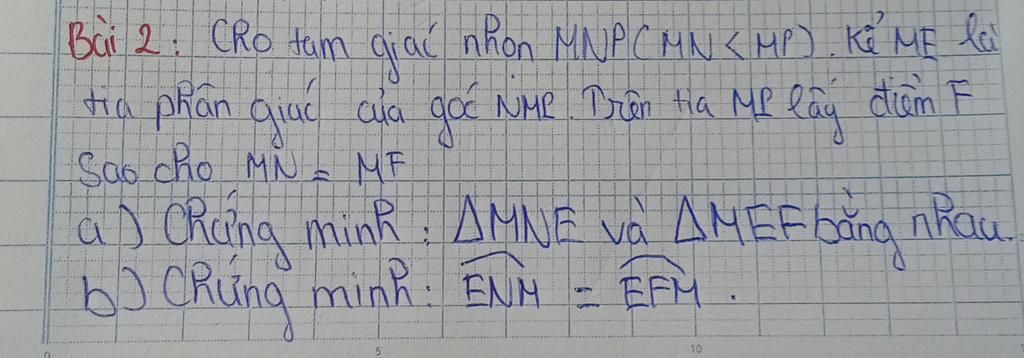 Bài 2: Cho tam giác nhọn MNP (MN < MP). Kẻ ME là
tia phân giác của góc NMP. Trên tia MP lấy điểm F
Sao cho MN = MF
a) Chứng minh: ΔMNE và ΔMEF bằng nhau.
b) Chứng minh: \widehat{ENM} = \widehat{EFM}.
0 5 10